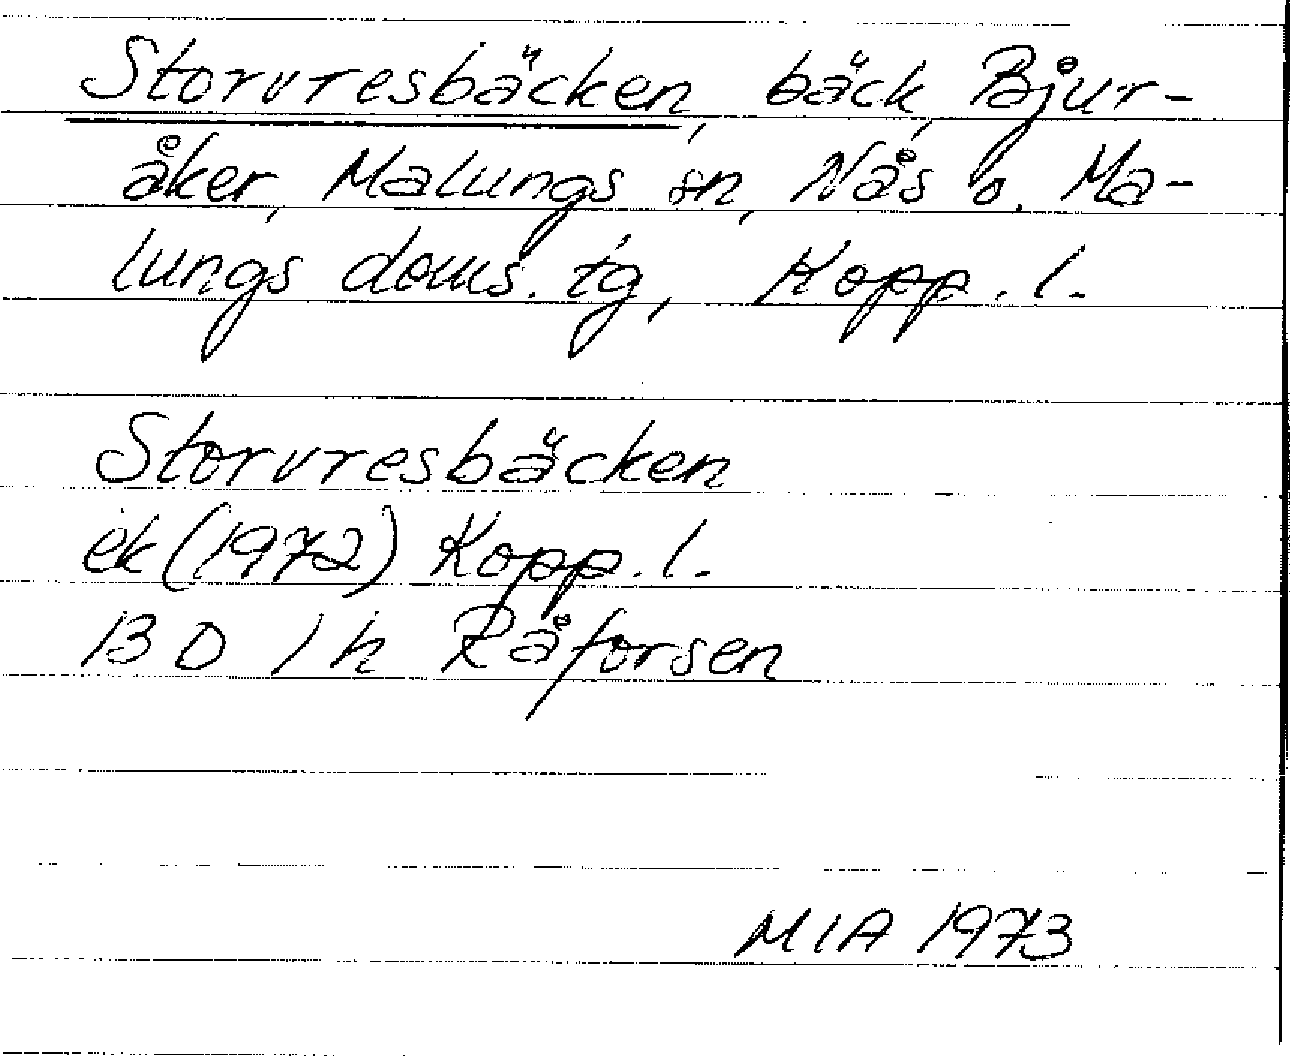 Storvresbäcken, bäck, Bjur-
åker, Malungs sn, Nås o. Ma-
lungs doms. tg, Kopp. l.
Storvresbäcken
ek (1972) Kopp. l.
13 D 1 h Råforsen
MIA 1973